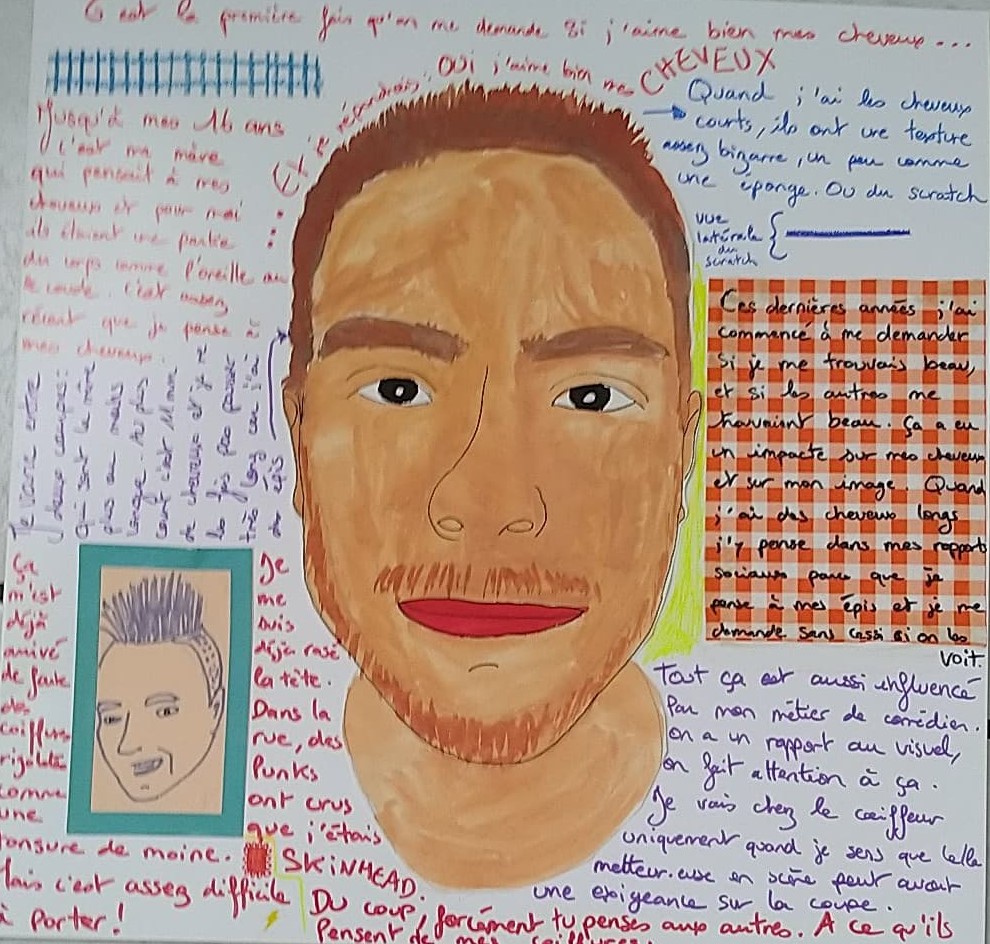 C'est la première fois qu'on me demande si j'aime bien mes cheveux...
Et je répondrais: OUI j'aime bien mes CHEVEUX
Jusqu'à mes 16 ans
c'est ma mère
qui pensait à mes
cheveux et pour moi
ils étaient une partie
du corps comme l'oreille ou
le coude. C'est assez
récent que je pense à
mes cheveux.
Je varie entre
deux coupes:
qui sont le même
plus ou moins
longue. Au plus
court c'est 11mm
de cheveux et je ne
les fais pas pousser
très long car j'ai
des épis
Quand j'ai les cheveux
courts, ils ont une texture
assez bizarre, un peu comme
une éponge. Ou du scratch
vue
latérale
du
scratch
Ces dernières années j'ai
commencé à me demander
si je me trouvais beau,
et si les autres me
trouvaient beau. Ça a eu
un impacte sur mes cheveux
et sur mon image. Quand
j'ai des cheveux longs
j'y pense dans mes rapport
sociaux parce que je
pense à mes épis et je me
demande sans cesse si on les
voit.
Ça
m'est
déjà
arrivé
de faire
des
coiffures
rigolotes
comme
une
tonsure de moine.
Mais c'est assez difficile
à porter!
Je
me
suis
déjà rasé
la tête.
Dans la
rue, des
Punks
ont crus
que j'étais
SKINHEAD.
Du coup, forcément tu penses aux autres. A ce qu'ils
Pensent de mes coiffures.
Tout ça est aussi influencé
Par mon métier de comédien.
on a un rapport au visuel,
on fait attention à ça.
Je vais chez le coiffeur
uniquement quand je sens que le/la
metteur.euse en scène peut avoir
une exigeance sur la coupe.